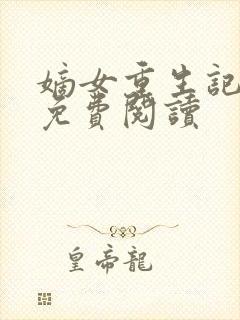 嫡女重生記
免費閱讀
皇帝龍